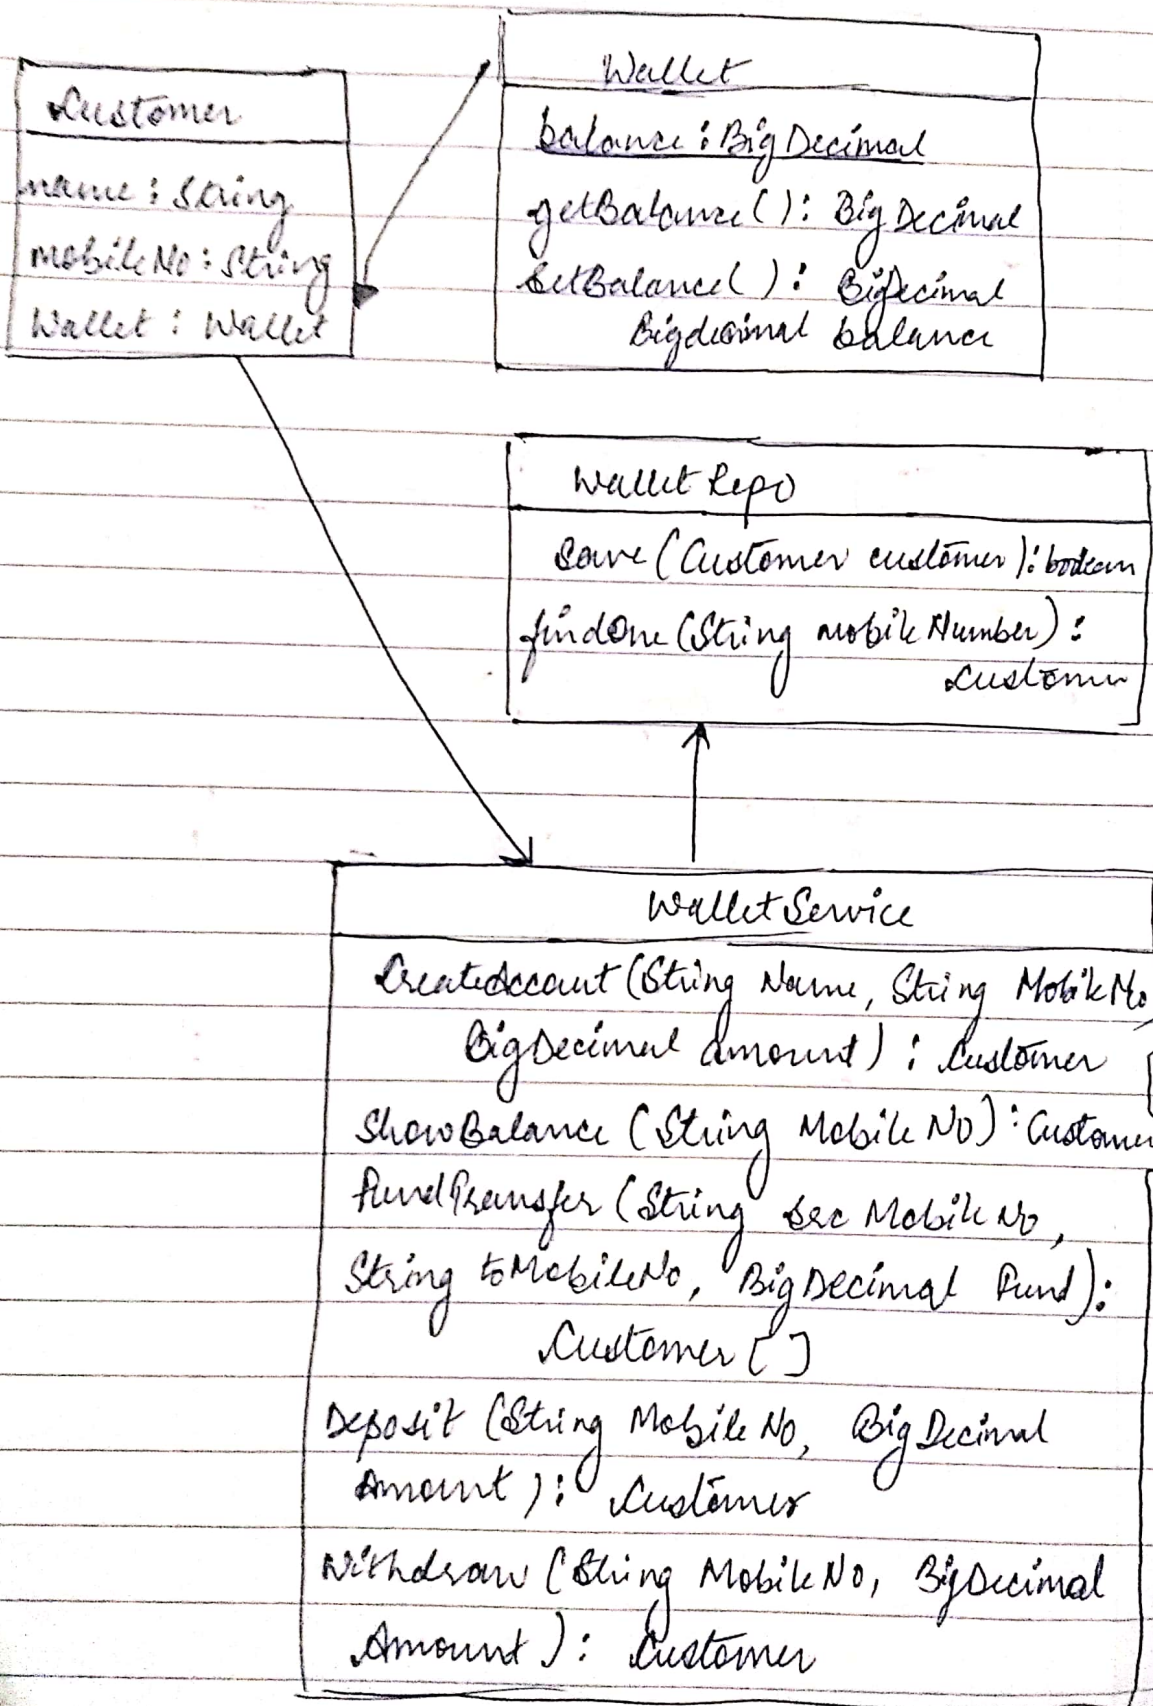 Customer
name : String
mobileNo : String
Wallet : Wallet
Wallet
balance : BigDecimal
getBalance() : BigDecimal
SetBalance() : BigDecimal
Bigdecimal balance
Wallet Repo
Save (Customer customer) : boolean
findOne (String mobileNumber) :
Customer
WalletService
CreateAccount (String Name, String MobileNo,
BigDecimal amount) : Customer
ShowBalance (String MobileNo) : Customer
FundTransfer (String src MobileNo,
String toMobileNo, BigDecimal Fund) :
Customer [ ]
Deposit (String MobileNo, BigDecimal
Amount) : Customer
Withdraw (String MobileNo, BigDecimal
Amount) : Customer